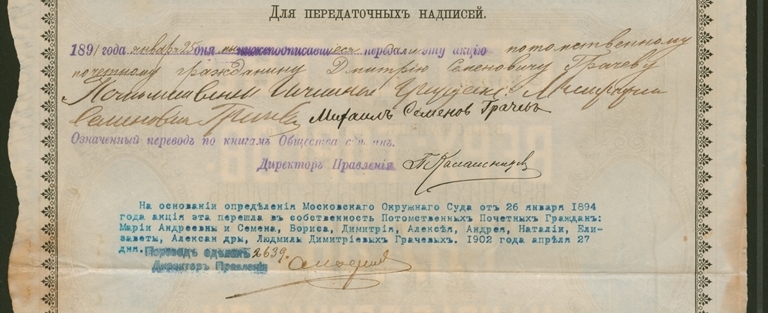 Для передаточныхъ надписей.
1891 года январ 25 дня мы нижеподписавшіеся передали эту акцію потомственному
почетному гражданину Дмитрію Семеновичу Грачеву
Потомственный
Михаилъ Семеновъ Грачевъ
Означенный переводъ по книгамъ Общества
Директоръ Правленія
На основаніи опредѣленія Московскаго Окружнаго Суда отъ 26 января 1894
года акція эта перешла въ собственность Потомственныхъ Почетныхъ Гражданъ:
Маріи Андреевны и Семена, Бориса, Димитрія, Алексѣя, Андрея, Наталіи, Ели-
заветы, Алексан дры, Людмилы Димитріевыхъ Грачевыхъ. 1902 года апрѣля 27
дня.
Переводъ сдѣланъ 2639.
Директоръ Правленія